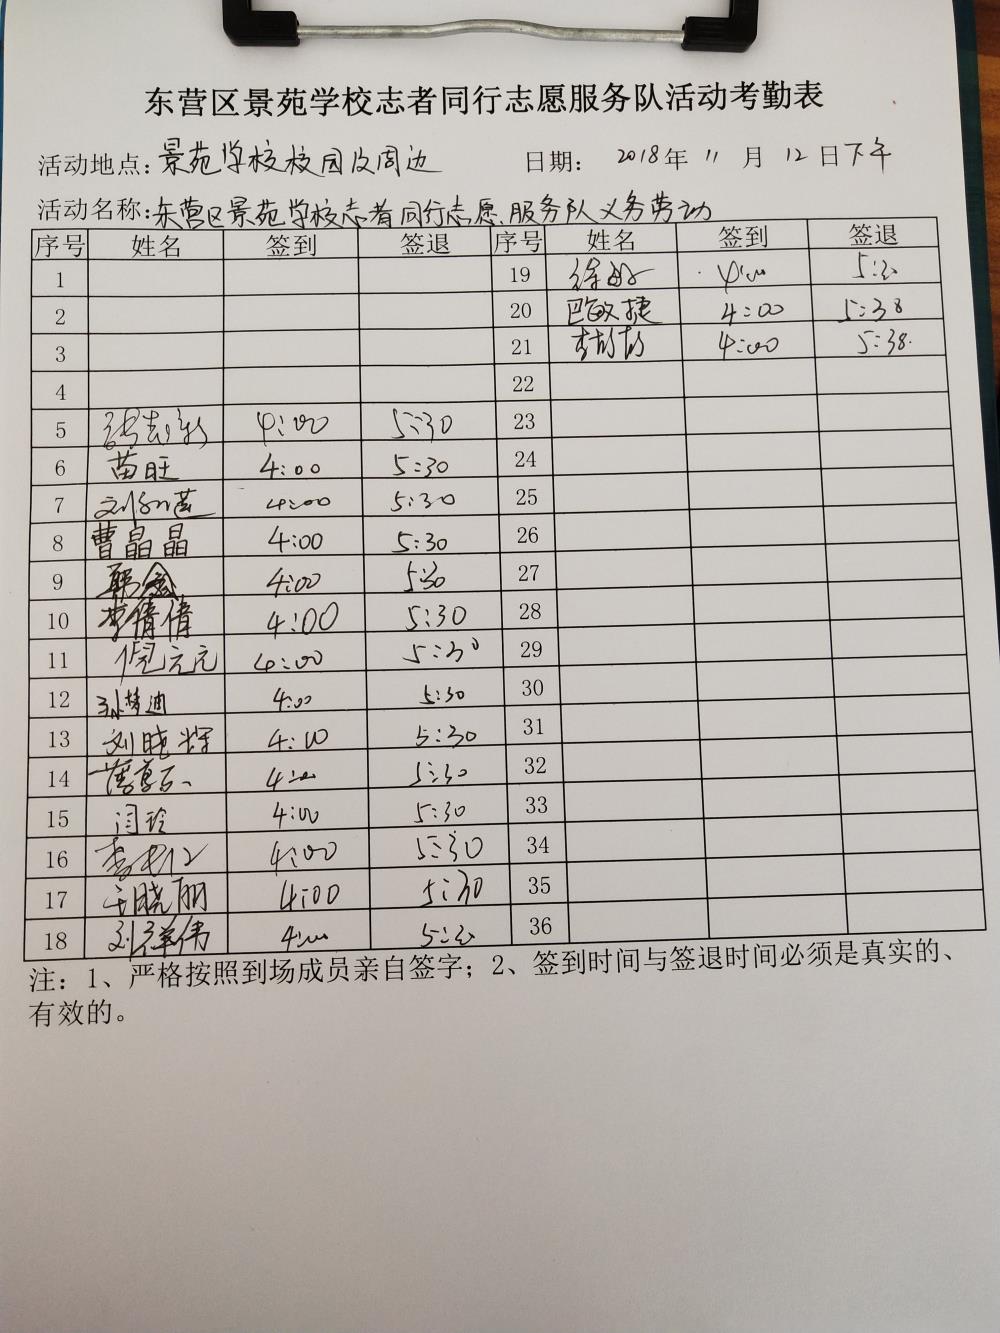 东营区景苑学校志者同行志愿服务队活动考勤表
活动地点:景苑学校校园及周边 日期: 2018年 11 月 12 日下午
活动名称:东营区景苑学校志者同行志愿服务队义务劳动
序号 姓名 签到 签退 序号 姓名 签到 签退
1 19 4:00
2 20 敏捷 4:00 5:38
3 21 4:00 5:38.
4 22
5 4:00 5:30 23
6 苗旺 4:00 5:30 24
7 4:00 5:30 25
8 曹晶晶 4:00 5:30 26
9 4:00 5:30 27
10 李倩倩 4:00 5:30 28
11 倪元元 4:00 5:30 29
12 孙梦迪 4:00 5:30 30
13 刘晓辉 4:00 5:30 31
14 4:00 5:30 32
15 闫玲 4:00 5:30 33
16 4:00 5:30 34
17 王晓丽 4:00 5:30 35
18 刘祥伟 4:00 36
注:1、严格按照到场成员亲自签字;2、签到时间与签退时间必须是真实的、
有效的。